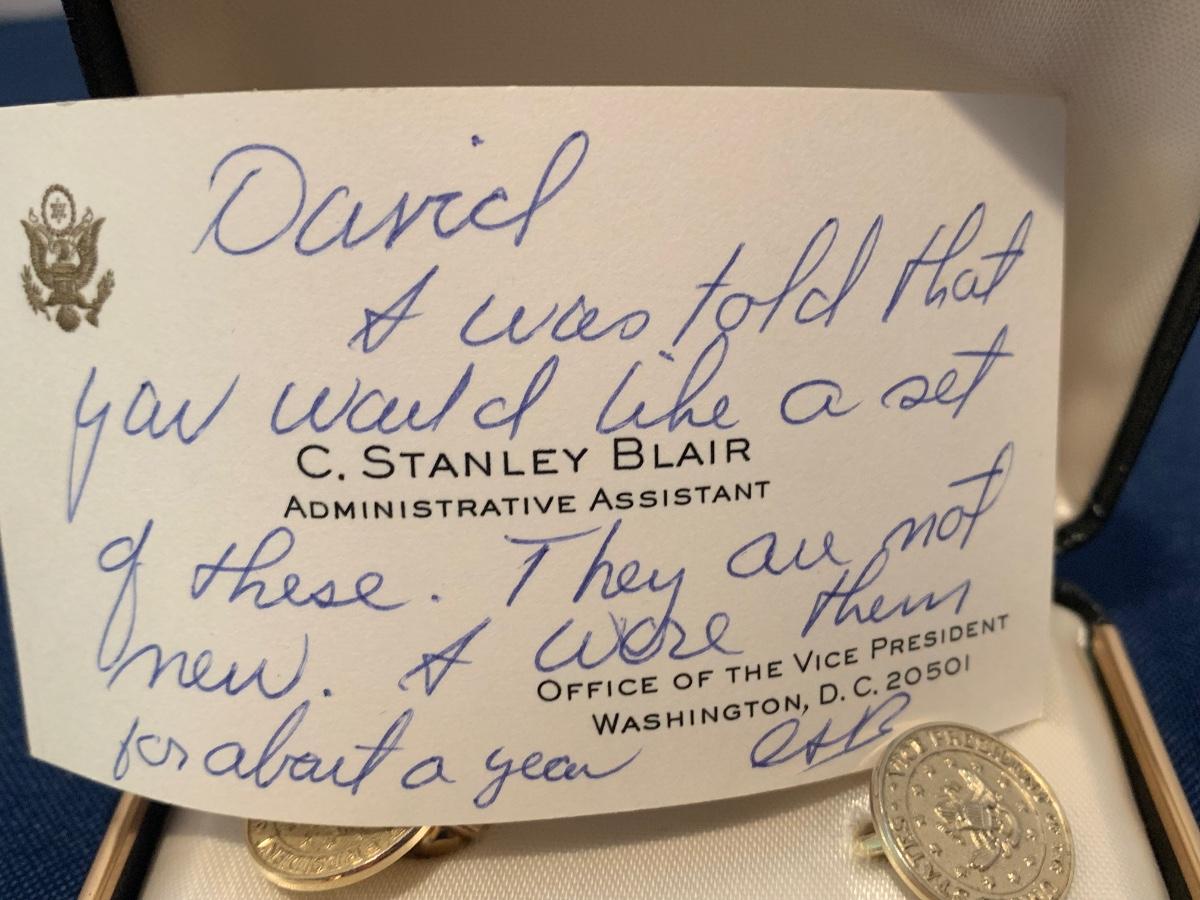 David
I was told that
you would like a set
C. STANLEY BLAIR
ADMINISTRATIVE ASSISTANT
of these. They are not
new. I wore them
OFFICE OF THE VICE PRESIDENT
WASHINGTON, D. C. 20501
for about a year CSB
VICE PRESIDENT
STATES